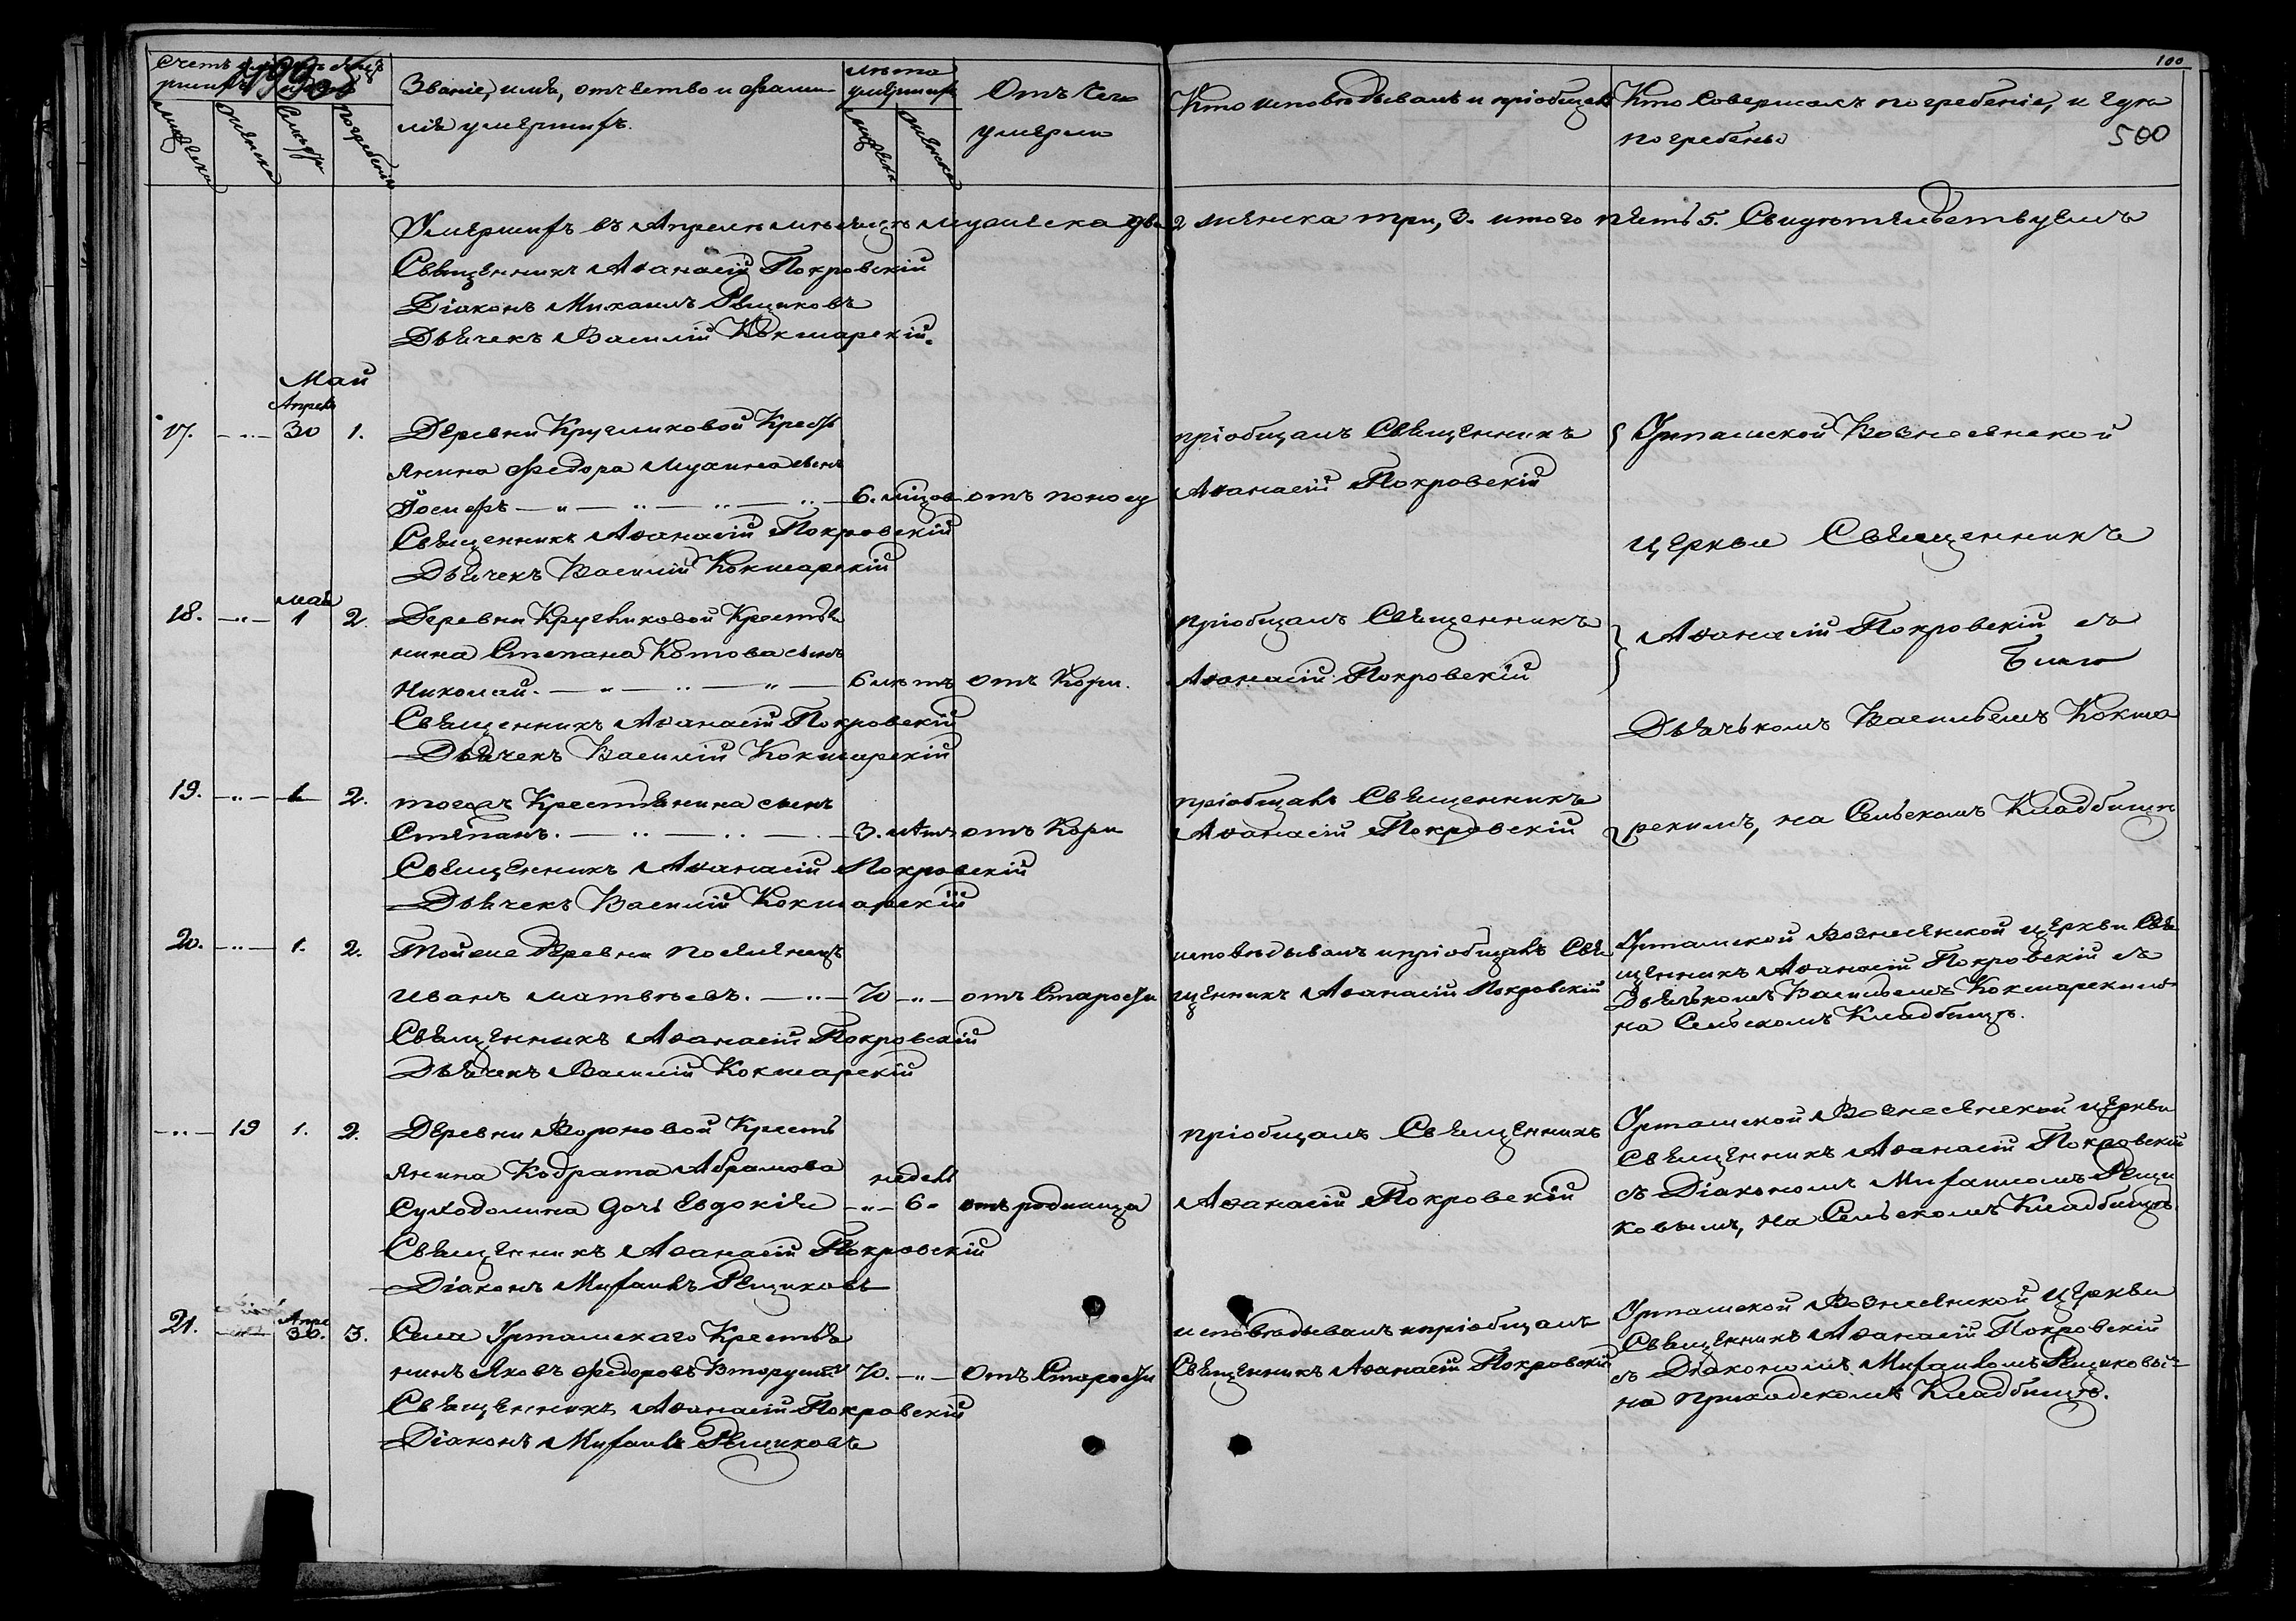 100
500
Счетъ умершихъ
Мужеска
Женска
Смерти
Погребенія
Званіе, имя, отчество и фамилія умершихъ.
Лѣта умершихъ
мужеска
женска
Отъ чего умерли
Кто исповѣдывалъ и пріобщалъ
Кто совершалъ погребеніе, и гдѣ погребены
Умершихъ въ Апрелѣ мѣсяцѣ мужеска два 2 женска три, 3. итого пять 5. Свидѣтельствуемъ
Священникъ Аѳанасій Покровскій
Діаконъ Михаилъ Рещиковъ
Дьячекъ Василій Кокшарскій.
Май
Апрель
17. —"— 30 1. Деревни Кругликовой Кресть
янина Федора Мухина сынъ
Іосифъ —"— —"— —"— 6. мѣцов отъ поносу
Священникъ Аѳанасій Покровскій
Дьячекъ Василій Кокшарскій
пріобщалъ Священникъ
Аѳанасій Покровскій
Урташской Вознесенской
церкви Священникъ
мая
18. —"— 1 2. Деревни Кругликовой Крестья
нина Степана Котова сынъ
Николай. —"— —"— —"— 6 лѣтъ отъ Кори.
Священникъ Аѳанасій Покровскій
Дьячекъ Василій Кокшарскій
пріобщалъ Священникъ
Аѳанасій Покровскій
Аѳанасій Покровскій съ
Дьячькомъ Васильемъ Кокша
19. —"— 1 2. тогожъ Крестьянина сынъ
Степанъ. —"— —"— 3. лѣтъ отъ Кори
Священникъ Аѳанасій Покровскій
Дьячекъ Василій Кокшарскій
пріобщалъ Священникъ
Аѳанасій Покровскій
рскимъ, на Сельскомъ Кладбищѣ
20. —"— 1. 2. Тойже деревни поселенецъ
Иванъ Матвѣевъ. —"— 70 —"— отъ Старости
Священникъ Аѳанасій Покровскій
Дьячекъ Василій Кокшарскій
исповѣдывалъ и пріобщалъ Свя
щенникъ Аѳанасій Покровскій
Урташской Вознесенской церкви Свя
щенникъ Аѳанасій Покровскій съ
Дьячькомъ Васильемъ Кокшарскимъ
на Сельскомъ Кладбищѣ.
—"— 19 1. 2. Деревни Вороновой Кресть
янина Кодрата Абрамова
недель
Суходолина дочь Евдокія —"— 6. отъ родимца
Священникъ Аѳанасій Покровскій
Діаконъ Михаилъ Рещиковъ
пріобщалъ Священникъ
Аѳанасій Покровскій
Урташской Вознесенской церкви
Священникъ Аѳанасій Покровскій
съ Діакономъ Михаиломъ Рещи
ковымъ, на Сельскомъ Кладбищѣ.
Апре
21. 30. 3. Села Урташскаго Крестья
нинъ Яковъ Федоровъ 70. —"— Отъ Старости
Священникъ Аѳанасій Покровскій
Діаконъ Михаилъ Рещиковъ
исповѣдывалъ и пріобщалъ
Священникъ Аѳанасій Покровскій
Урташской Вознесенской церкви
Священникъ Аѳанасій Покровскій
съ Діакономъ Михаиломъ Рещиковы
на приходскомъ Кладбищѣ.